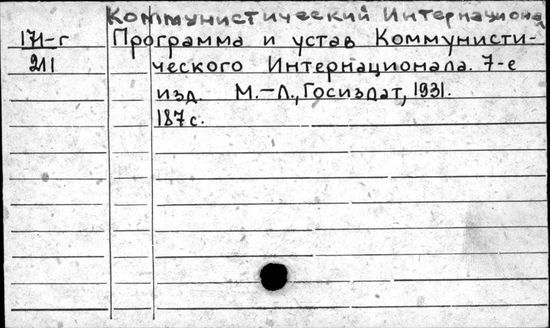 Коммунистический Интернационал
171-г Программа и устав Коммунисти-
211 ческого Интернационала. 7-е
изд. М.-Л., Госиздат, 1931.
187 с.